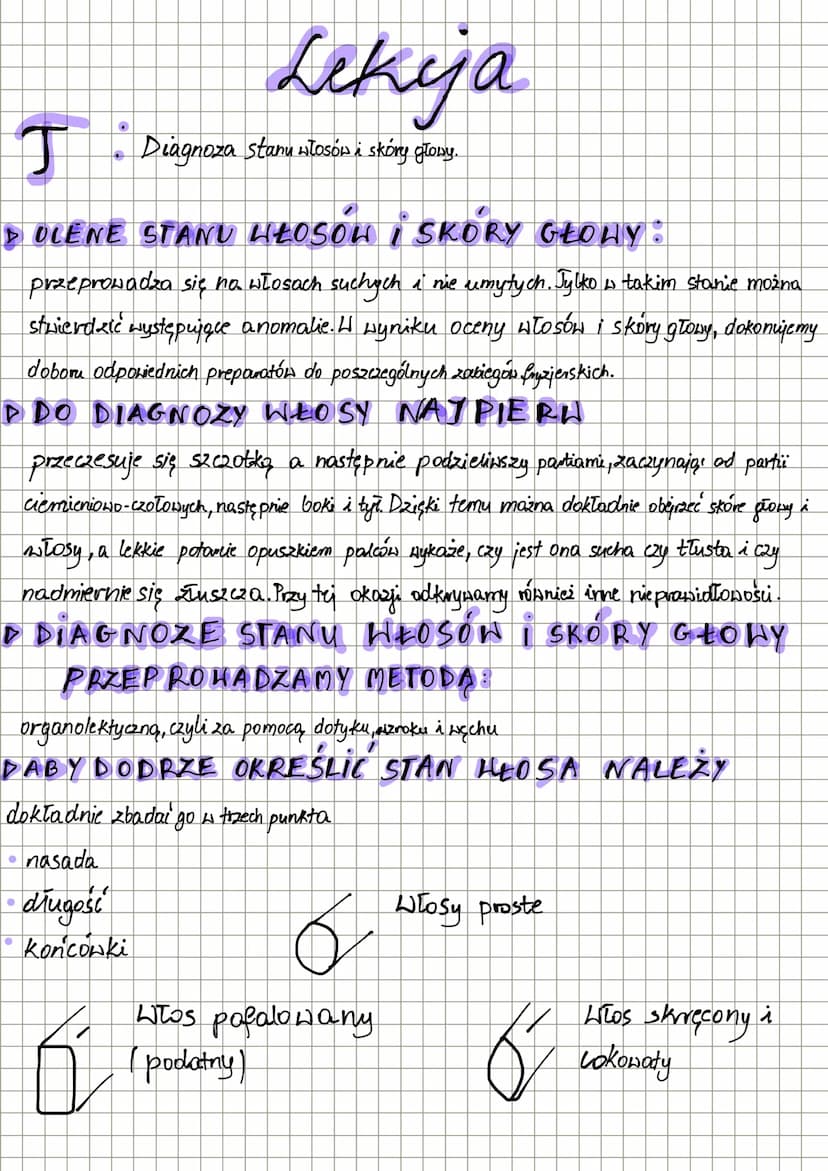 Lekcja
T: Diagnoza stanu włosów i skóry głowy.
OCENE STANU WŁOSÓW i SKÓRY GŁOWY:
przeprowadza się na włosach suchych i nie umytych. Tylko w takim stanie można
stwierdzić występujące anomalie. W wyniku oceny włosów i skóry głowy, dokonujemy
doboru odpowiednich preparatów do poszczególnych zabiegów fryzjerskich.
DO DIAGNOZY WŁOSY NAJPIERW
przeczesuje się szczotką a następnie podzieliwszy partiami, zaczynając od partii
ciemieniowo-czołowych, następnie boki i tył. Dzięki temu można dokładnie obejrzeć skóre głowy i
włosy, a lekkie potarcie opuszkiem palców wykaże, czy jest ona sucha czy tłusta i czy
nadmiernie się złuszcza. Przy tej okazji odkrywamy również inne nieprawidłowości.
DIAGNOZE STANU WŁOSÓW i SKÓRY GŁOWY
PRZEPROWADZAMY METODĄ:
organolektyczną, czyli za pomocą dotyku, wzroku i węchu
ABY DODRZE OKREŚLIĆ STAN WŁOSA NALEŻY
dokładnie zbadać go w trzech punkta
• nasada
• długość
• końcówki
Włosy proste
Włos pofalowany
(podatny)
Włos skręcony i
lokowaty